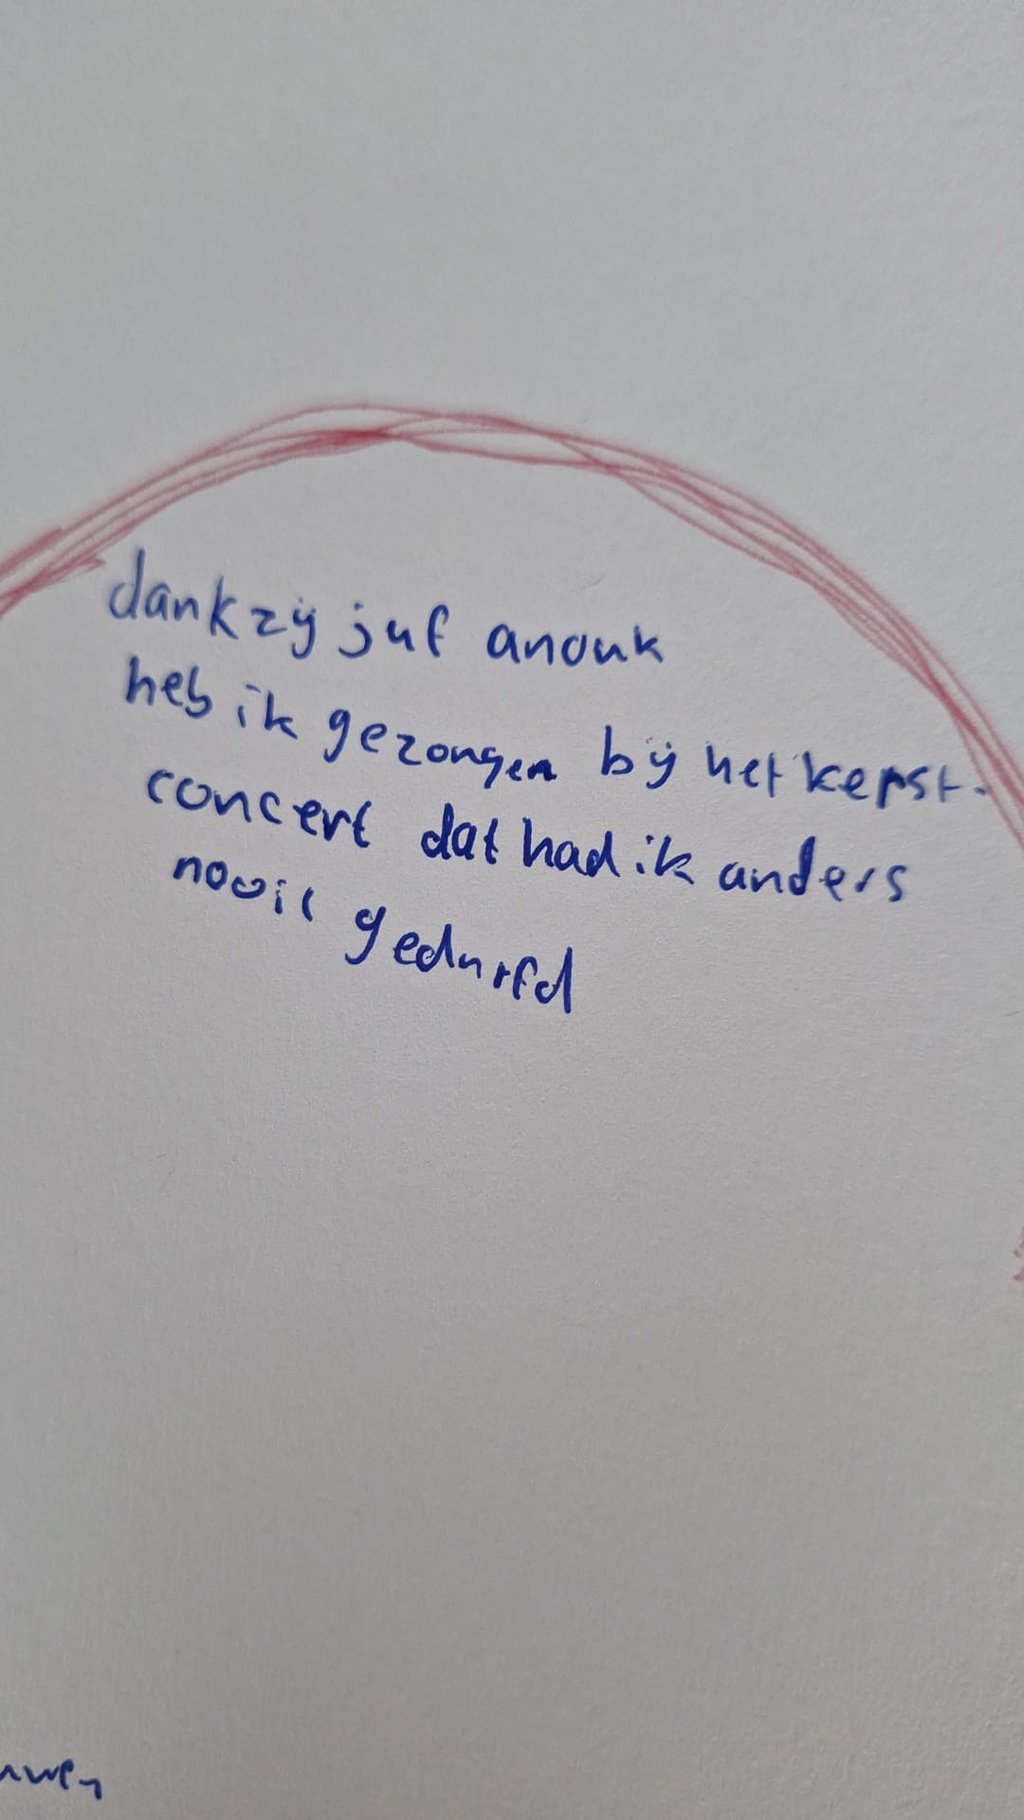 dankzij juf anouk
heb ik gezongen bij het kerst-
concert dat had ik anders
nooit gedurfd